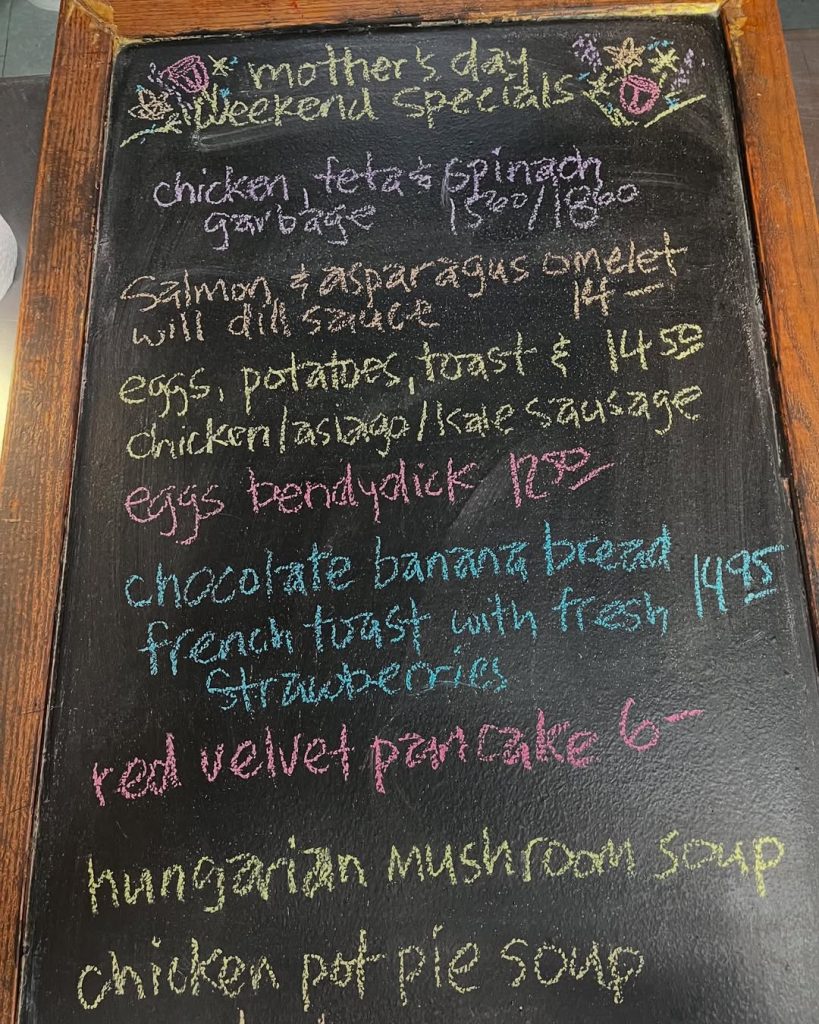 mother's day
weekend specials
chicken, feta & spinach
garbage 15⁰⁰/18⁰⁰
Salmon & asparagus omelet
will dill sauce 14-
eggs, potatoes, toast & 14⁵⁰
chicken/asiago/kale sausage
eggs bendydick 12⁵⁰
chocolate banana bread
french toast with fresh 14⁹⁵
strawberries
red velvet pancake 6-
hungarian mushroom soup
chicken pot pie soup